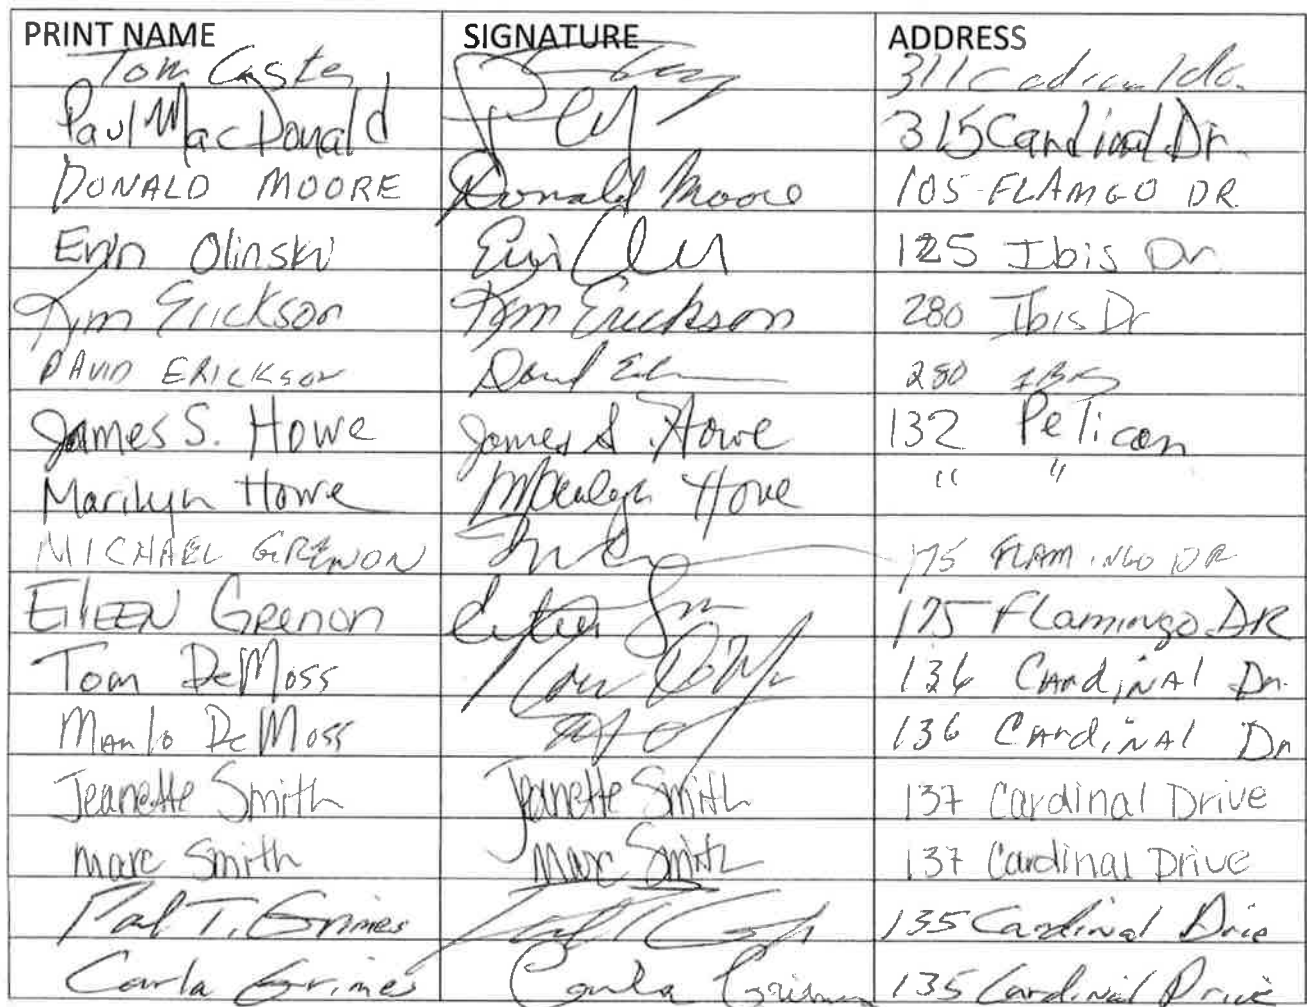 PRINT NAME SIGNATURE ADDRESS
Tom 311
Paul MacDonald 315 Cardinal Dr.
DONALD MOORE Donald Moore 105 FLAMGO DR.
Erin Olinski Erin 125 Ibis Dr.
Kim Erickson Kim Erickson 280 Ibis Dr
DAVID ERICKSON David 280 IBIS
James S. Howe James S. Howe 132 Pelican
Marilyn Howe Marilyn Howe " "
MICHAEL GRENON 175 FLAMINGO DR
EILEEN Grenon 175 Flamingo DR
Tom DeMoss Tom 136 Cardinal Dr.
Marlo DeMoss 136 Cardinal Dr
Jeanette Smith Jeanette Smith 137 Cardinal Drive
Marc Smith Marc Smith 137 Cardinal Drive
Paul T. Grimes 135 Cardinal Drive
Carla Grimes Carla Grimes 135 Cardinal Drive